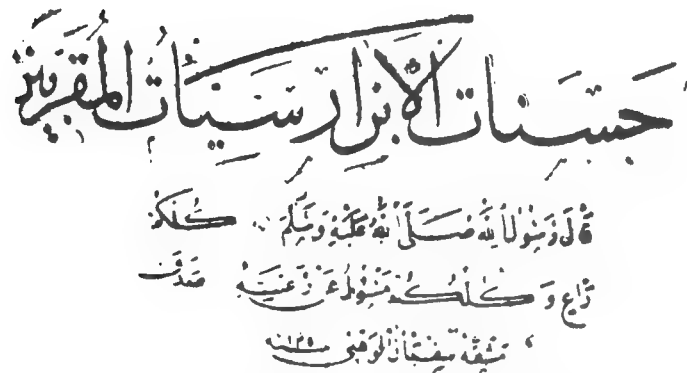 حسنات الأبرار سيئات المقربين
قال رسول الله صلى الله عليه وسلم كلكم
راع وكلكم مسئول عن رعيته صدق
مشقه